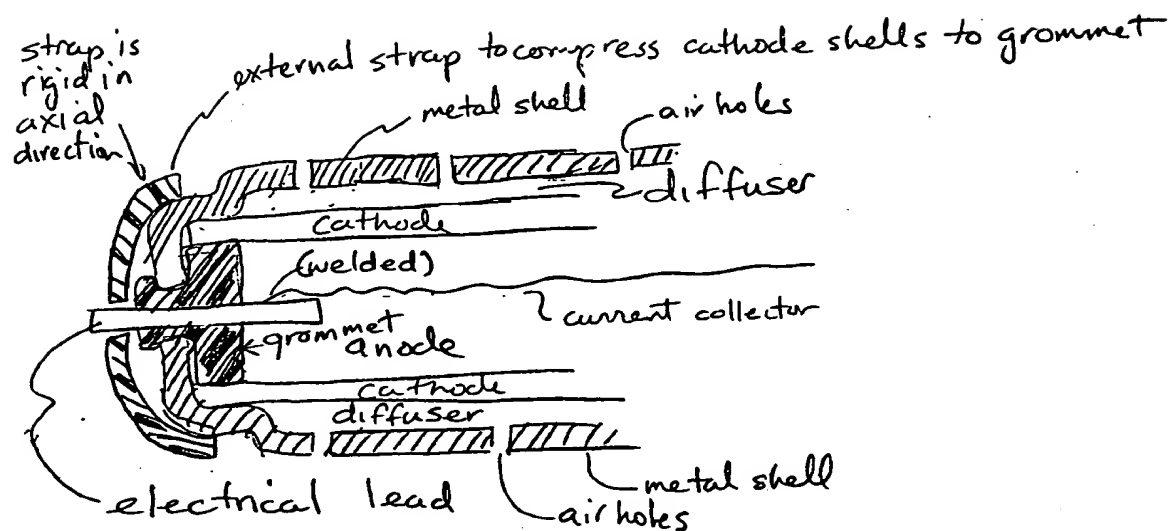 strap is
rigid in
axial
direction
external strap to compress cathode shells to grommet
metal shell
air holes
diffuser
cathode
(welded)
current collector
grommet
anode
cathode
diffuser
metal shell
electrical lead
air holes